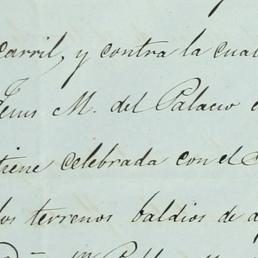 carril, y contra la cual
Jesus M. del Palacio
tiene celebrada con el
los terrenos baldios de